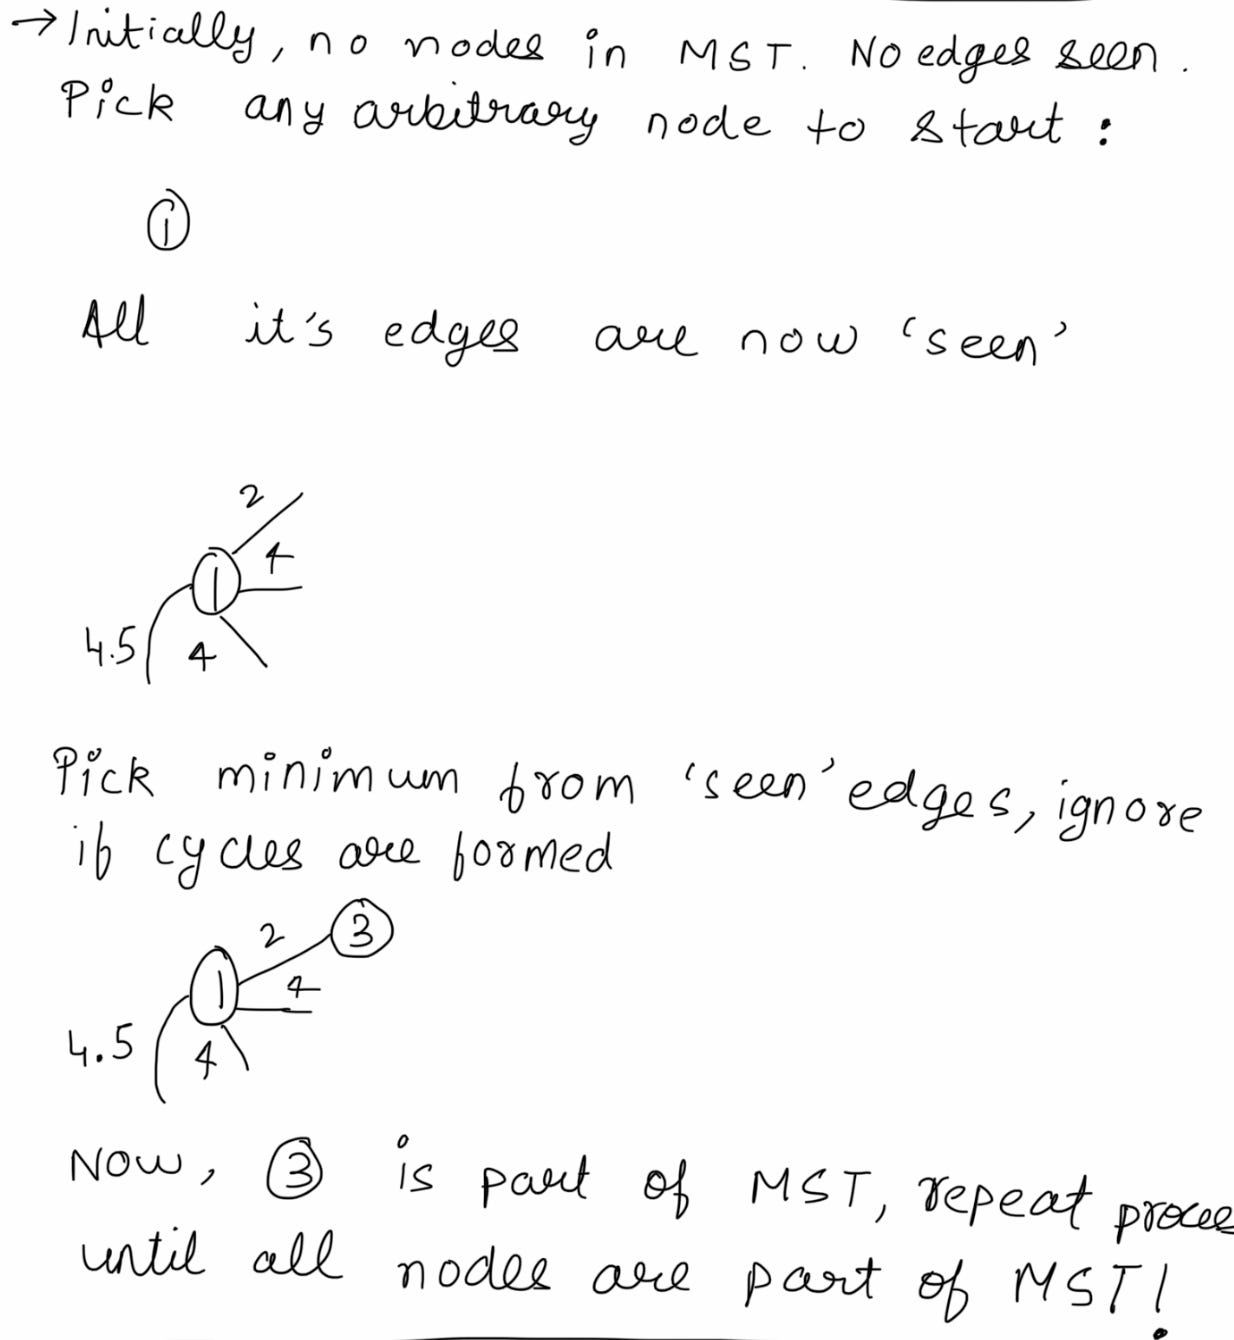 → Initially, no nodes in MST. No edges seen.
Pick any arbitrary node to start :
1
All it's edges are now 'seen'
2
4
1
4.5
4
Pick minimum from 'seen' edges, ignore
if cycles are formed
2
3
1
4
4.5
4
Now, 3 is part of MST, repeat
until all nodes are part of MST!